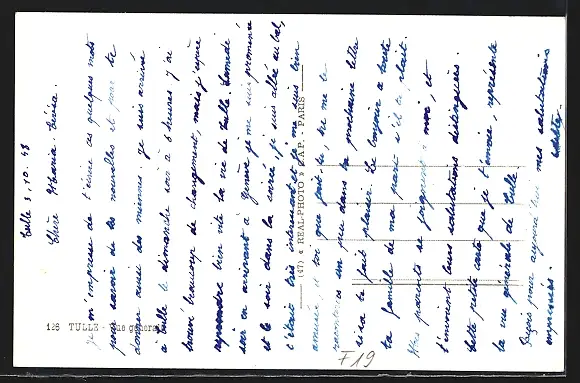 Tulle 3.10.48
Chère Maria Teresa.
Je m'empresse de t'écrire ces quelques mots
pour savoir de tes nouvelles et pour te
donner aussi des miennes. Je suis arrivé
à Tulle le dimanche soir à 6 heures j'ai
trouvé beaucoup de changement, mais j'espère
reprendre bien vite la vie de Tulle. Samedi
soir en arrivant à Genève je me suis promenée
et le soir dans la soirée, je suis allée au bal,
c'était très intéressant et je me suis bien
amusée, et toi que fais-tu, tu me le
raconteras un peu dans ta prochaine lettre
cela me fait plaisir. Le bonjour à toute
ta famille de ma part s'il te plait.
Mes parents se joignent à moi, et
t'envoient leurs salutations distinguées.
Cette petite carte que je t'envoie, représente
la vue générale de Tulle.
Reçois pour aujourd'hui mes salutations
empressées.
126 TULLE - Vue générale
(47) « REAL-PHOTO » C.A.P. - PARIS
F19